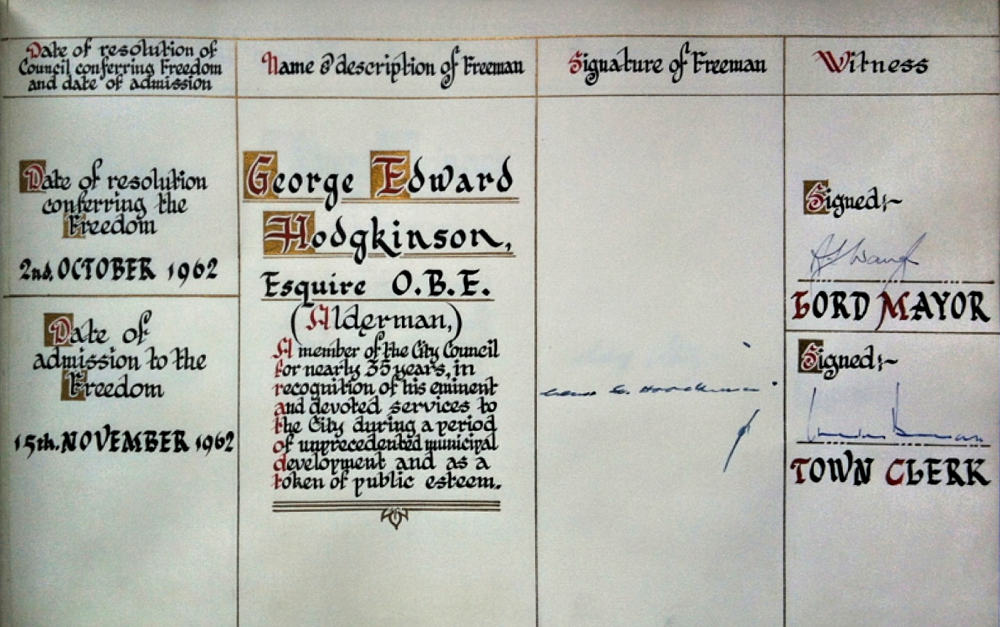 Date of resolution of
Council conferring Freedom
and date of admission
Name & description of Freeman
Signature of Freeman
Witness
Date of resolution
conferring the
Freedom
2nd, OCTOBER 1962
Date of
admission to the
Freedom
15th. NOVEMBER 1962
George Edward
Hodgkinson,
Esquire O.B.E.
(Alderman,)
A member of the City Council
for nearly 35 years, in
recognition of his eminent
and devoted services to
the City during a period
of unprecedented municipal
development and as a
token of public esteem.
Signed:~
LORD MAYOR
Signed:~
TOWN CLERK